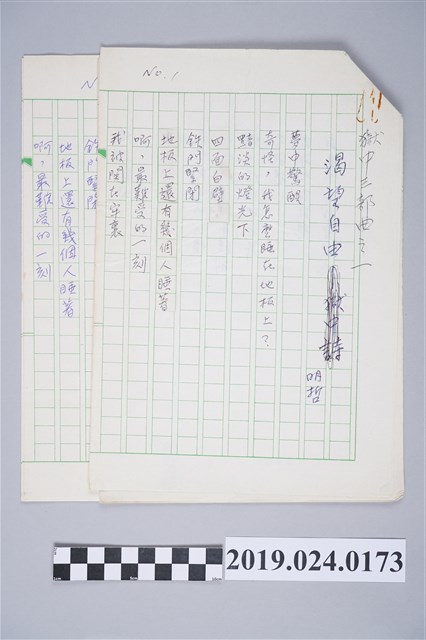 No. 1
獄中三部曲之一
渴望自由
獄中詩
明哲
夢中驚醒
奇怪，我怎麼睡在地板上？
黯淡的燈光下
四面白壁
鉄門堅閉
地板上還有幾個人睡着
啊，最難受的一刻
我被関在牢裏
N
鉄門堅閉
地板上還有幾個人睡着
啊，最難受的一刻
2019.024.0173